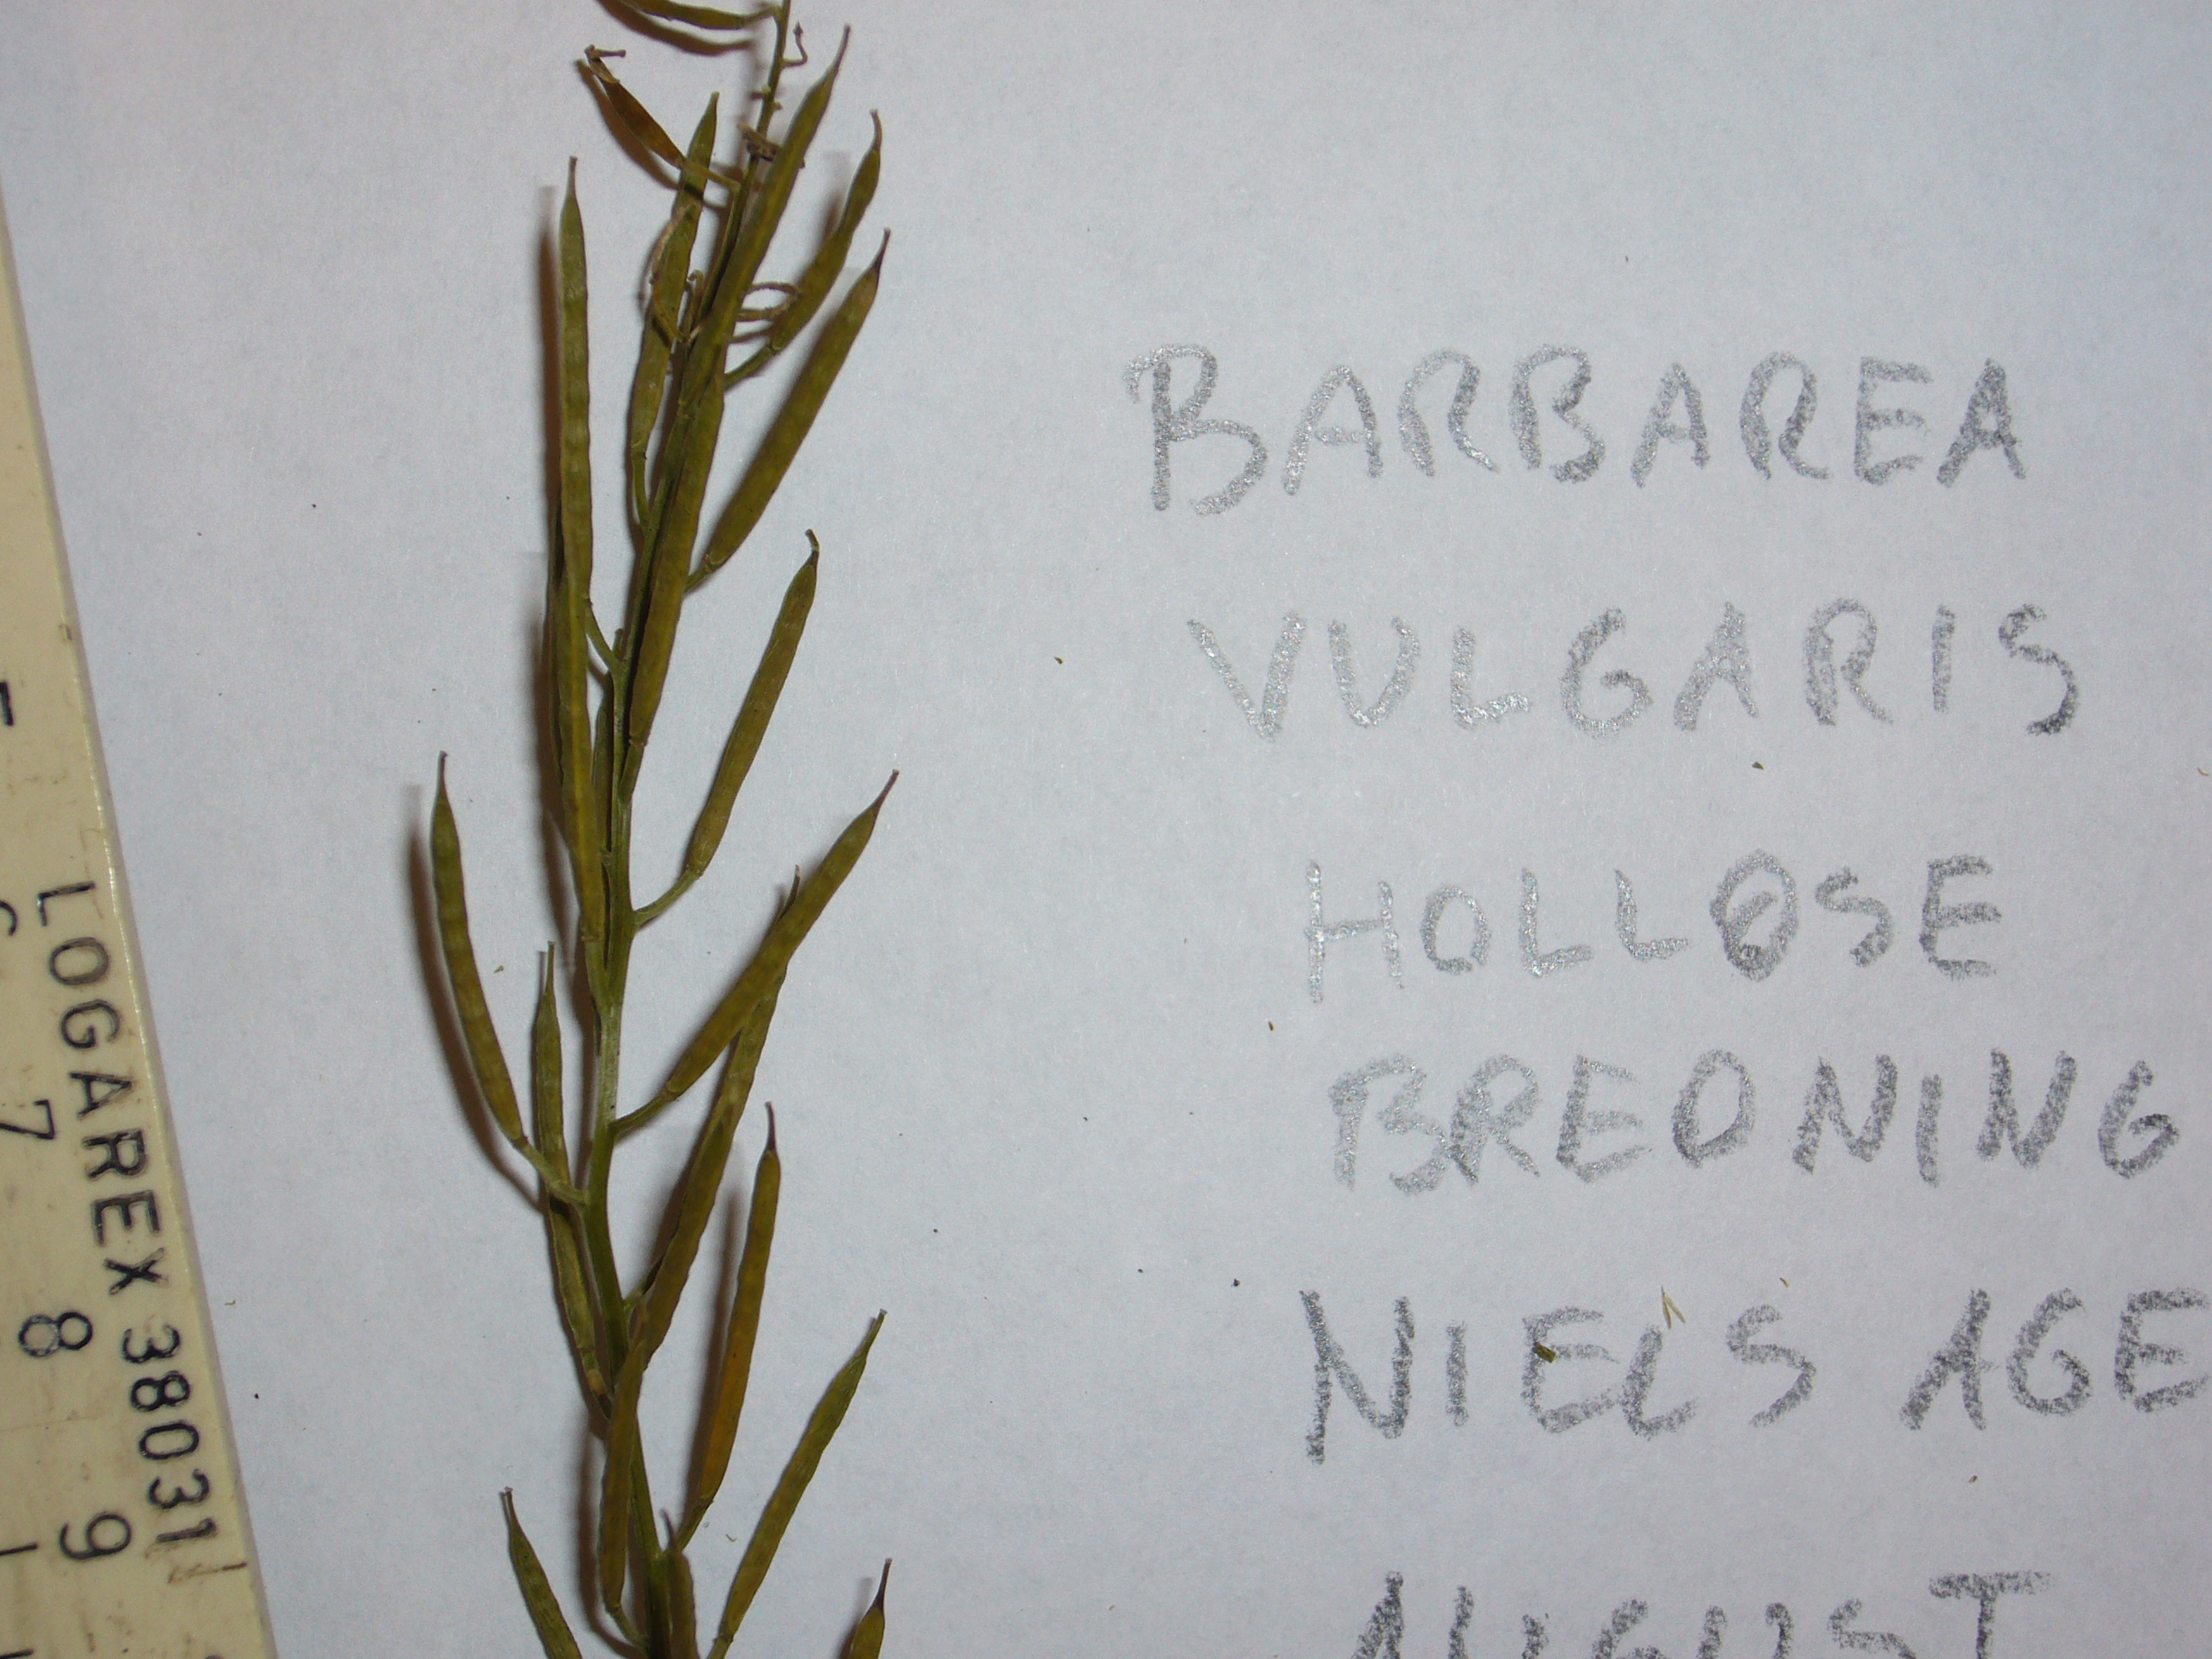 BARBAREA
VULGARIS
HOLLØSE
BREDNING
NIELS AGE
AUGUST
LOGAREX 38031
6
7
8
9